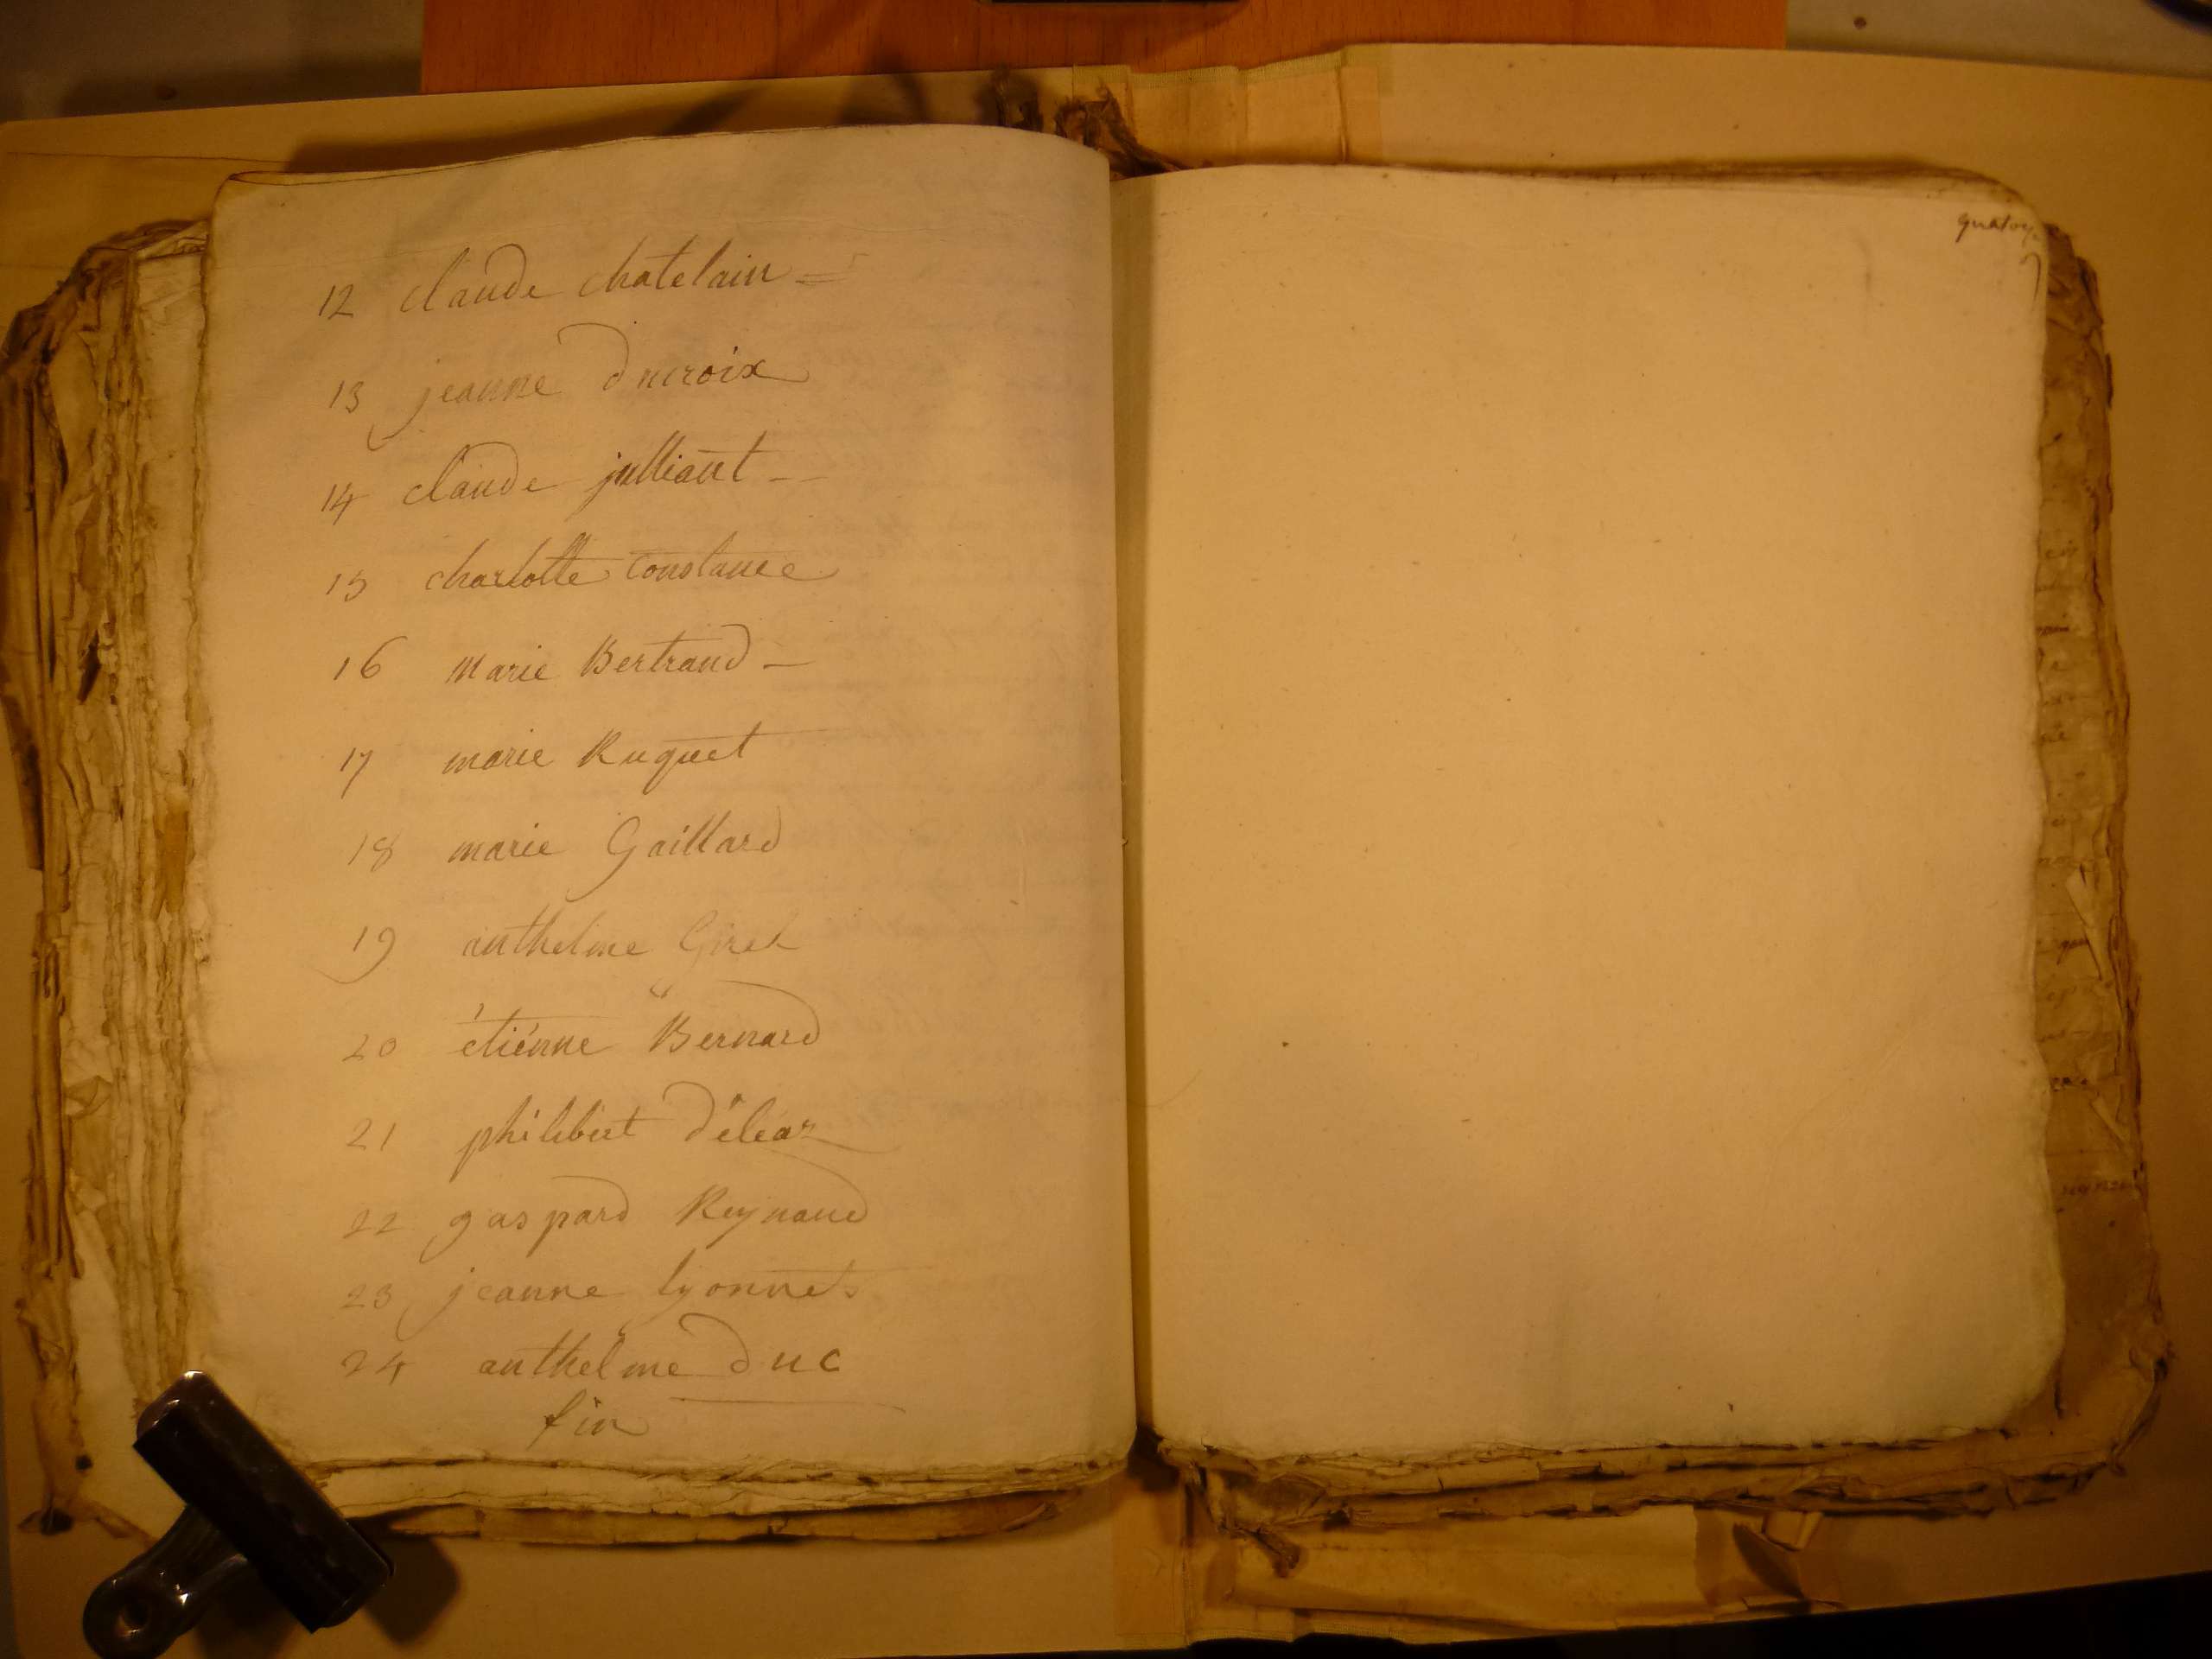 12 claude chatelain =
13 jeanne ducroix
14 claude julliant --
15 charlotte constance
16 marie Bertrand -
17 marie Ruquet
18 marie Gaillard
19 anthelme Girel
20 étiénne Bernard
21 philibert déléaz
22 gaspard Reynaud
23 jeanne lyonnet
24 anthelme duc
fin
quatorze